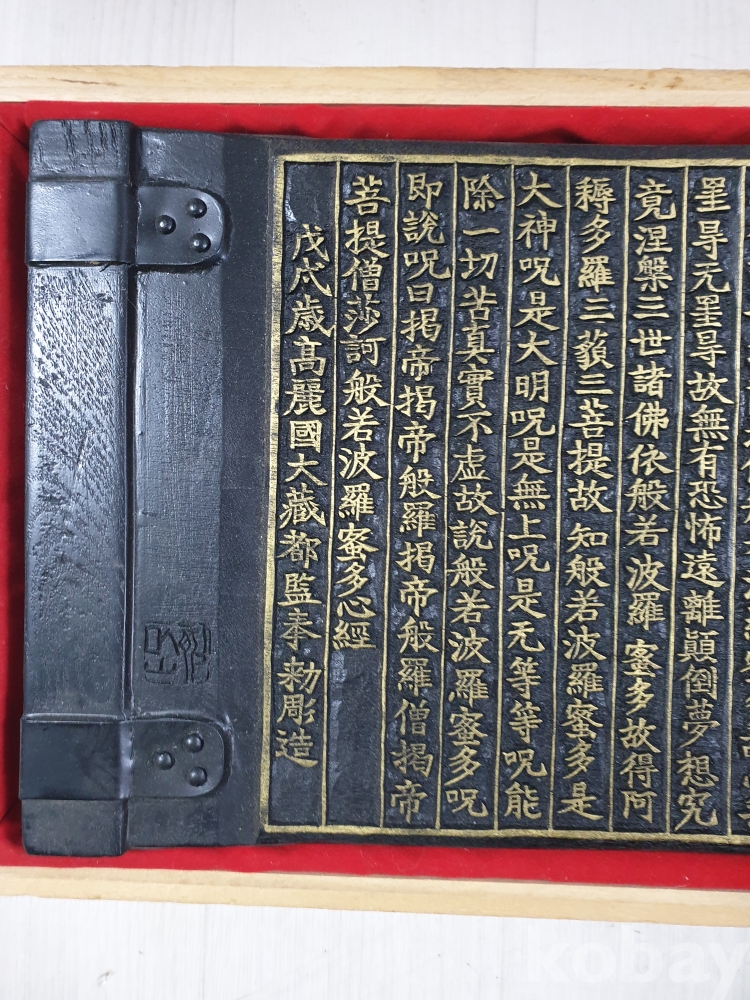 罣㝵无罣㝵故無有恐怖遠離顛倒夢想究
竟涅槃三世諸佛依般若波羅蜜多故得阿
耨多羅三藐三菩提故知般若波羅蜜多是
大神呪是大明呪是無上呪是无等等呪能
除一切苦真實不虛故說般若波羅蜜多呪
即說呪曰揭帝揭帝般羅揭帝般羅僧揭帝
菩提僧莎訶般若波羅蜜多心經
戊戌歲高麗國大藏都監奉勅彫造
kobay